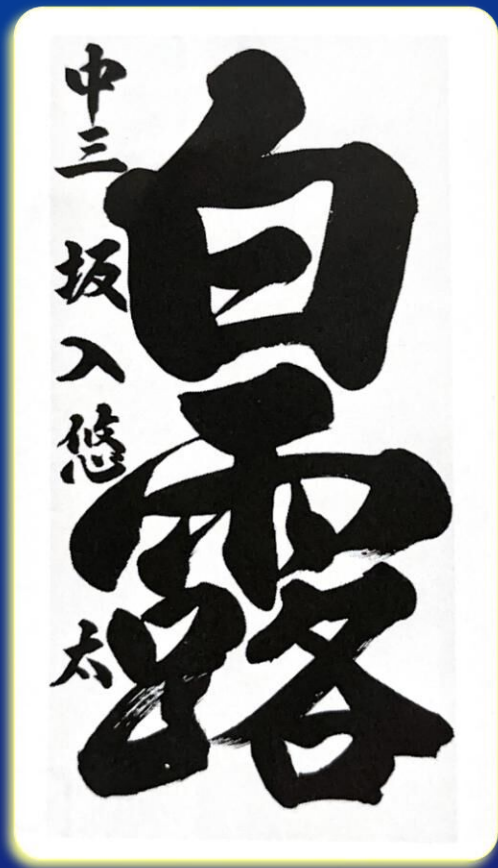 白露
中三 坂入悠太